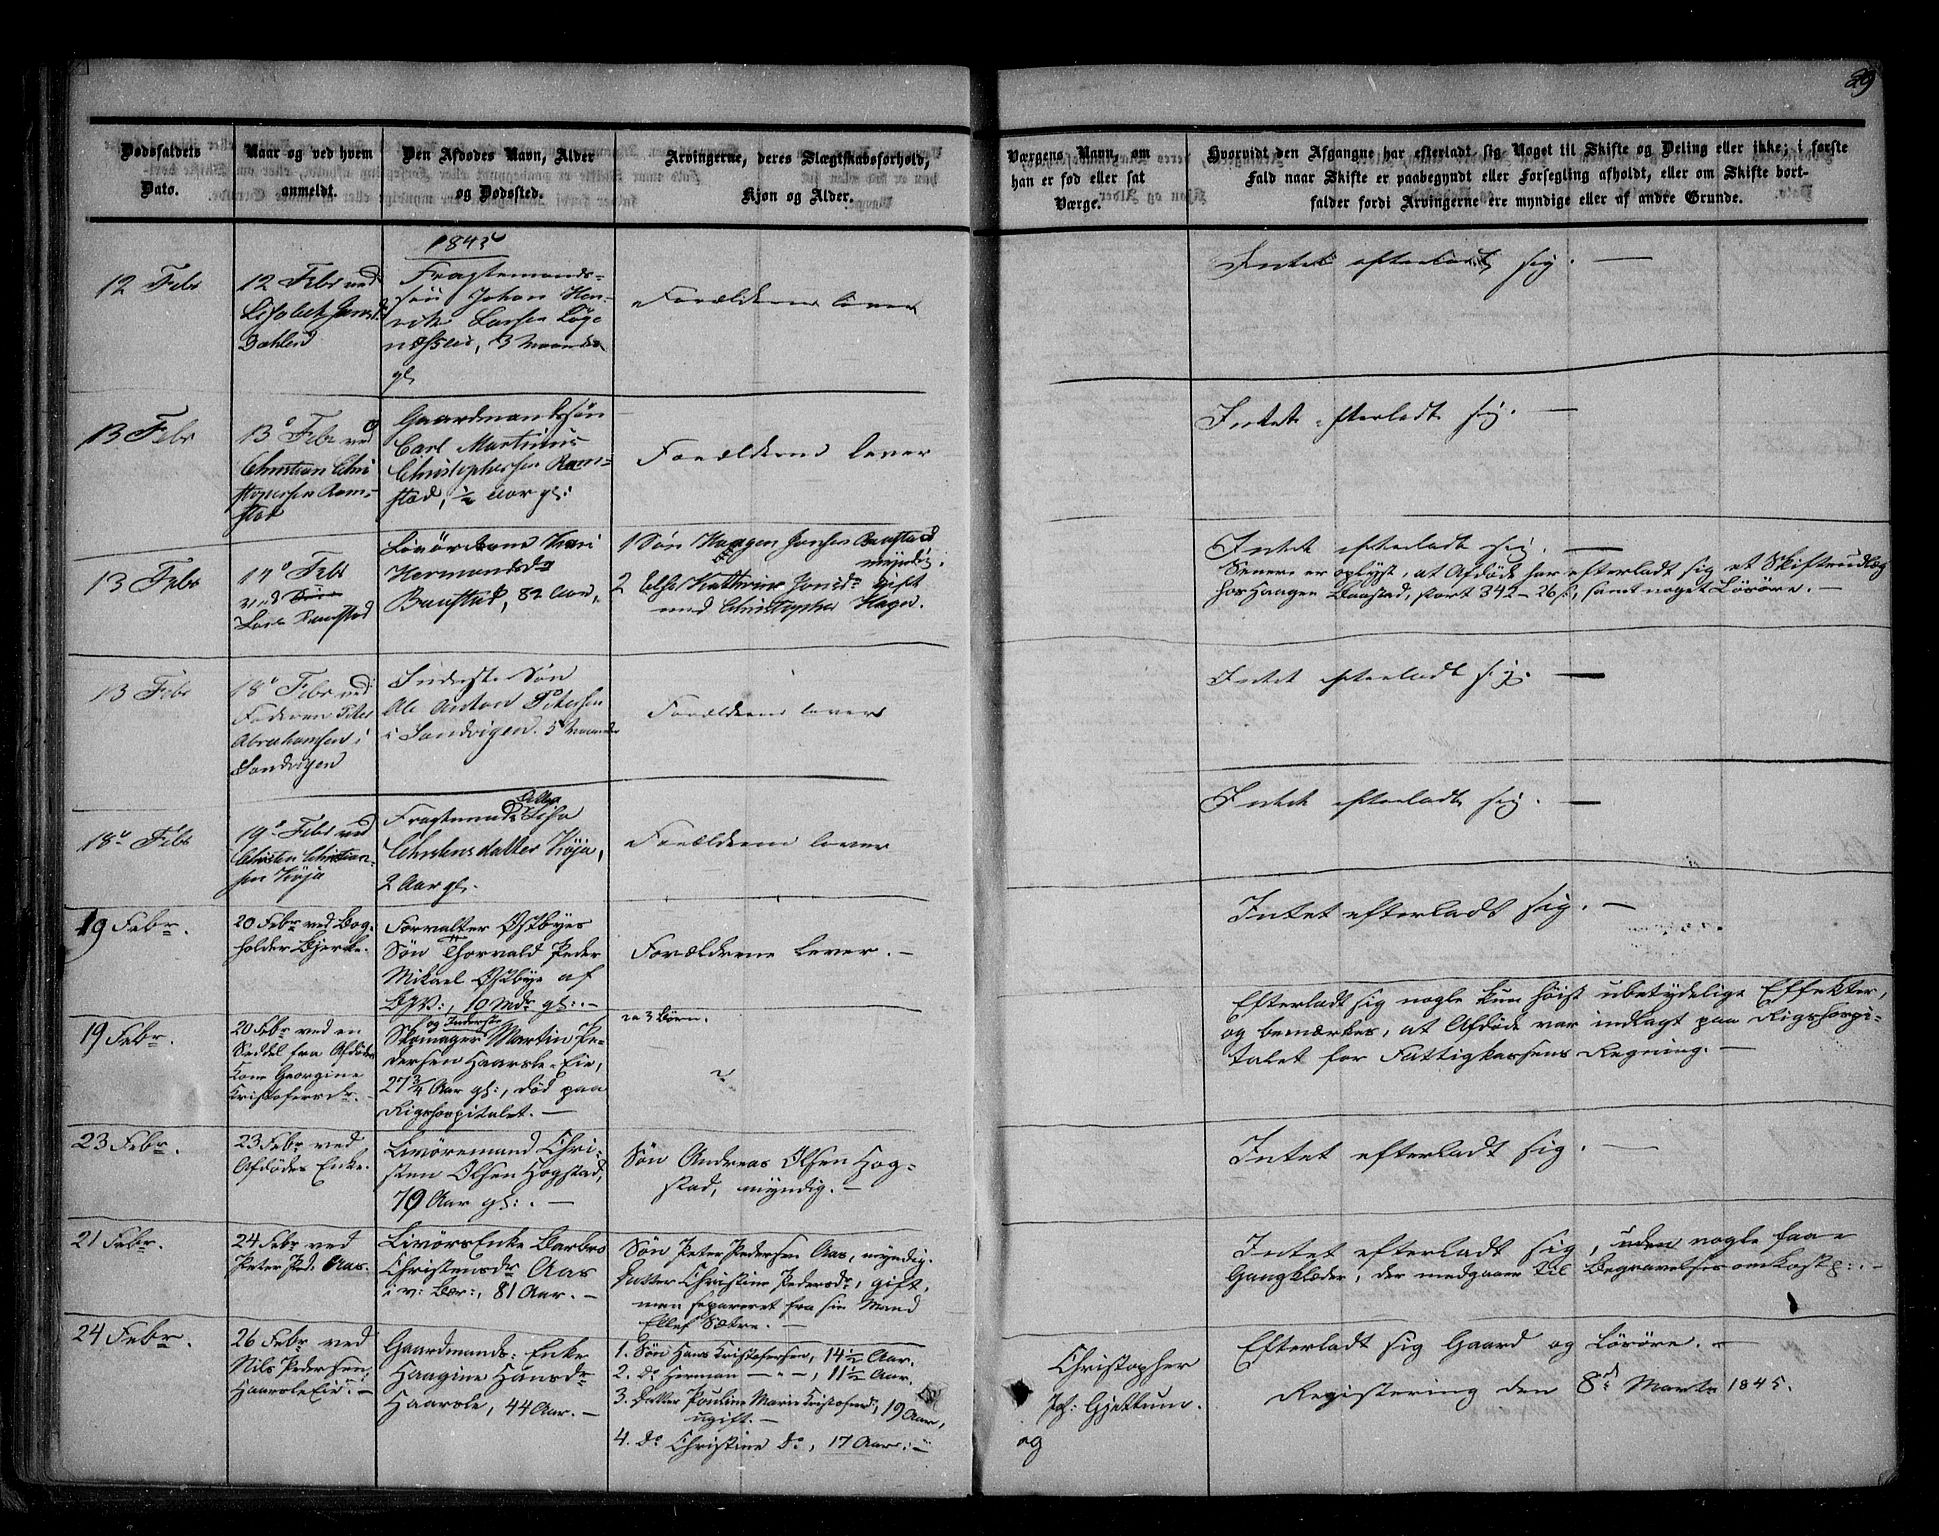 29
Dødsfaldets
Dato.
Naar og ved hvem
anmeldt.
Den Afdødes Navn, Alder
og Dødssted.
Arvingerne, deres Slægtskabsforhold,
Kjøn og Alder.
Værgens Navn, om
han er fød eller sat
Værge.
Hvorvidt den Afgangne har efterladt sig Noget til Skifte og Deling eller ikke; i første
Fald naar Skifte er paabegyndt eller Forsegling afholdt, eller om Skifte bort-
falder fordi Arvingerne ere myndige eller af andre Grunde.
1845
12 Febr
12 Febr ved
Lisabeth
Dæhlen
Fragtemands-
søn Johan Hen-
rik Larsen Løge
næsseie, 3 Maaneder
gl.
Forældrene lever
Intet efterladt sig. —
13 Febr
13de Febr ved
Christian Chri
stophersen Ram-
stad
Gaardmandssøn
Carl Martinus
Christophersen Ram-
stad, ½ Aar gl:
Forældrene lever
Intet efterladt sig. —
13 Febr
17de Febr
ved
Lars Baustad
Kari
Hermandsdr
Baustad, 82 Aar.
1 Søn Haagen Jonsen Baustad
myndig.
2 Else Kathrine Jonsdr gift
med Christopher Hagen.
Intet efterladt sig. —
Senere er oplyst, at Afdøde har efterladt sig et Skifteudlæg
hos Haagen Baastad, stort 342 - 26 s, samt noget Løsøre. —
13 Febr
18de Febr ved
Faderen Peter
Abrahamsen i
Sandvigen
Inderste Søn
Ole Anton Petersen
i Sandvigen. 5 Maaneder
Forældrene lever
Intet efterladt sig. —
18de Febr
19de Febr ved
Christen Christian-
sen Køja
Fragtemands Datter Lisa
Christensdatter Køja,
2 Aar gl.
Forældrene lever
Intet efterladt sig. —
19 Febr.
20 Febr ved Bog-
holder Bjerke.
Forvalter Østbyes
Søn Thorvald Peder
Mikael Østbye af
10 Mdr gl:. —
Forældrene lever. —
Intet efterladt sig. —
19 Febr.
20 Febr ved en
Seddel fra Afdødes
Kone Georgine
Kristofersdr. —
Skomager og Inderste Martin Pe-
dersen Haarsle-Eie,
27¾ Aar gl:, død paa
Rigshospitalet. —
2 a 3 Børn.
Efterladt sig nogle kun høist ubetydelige Effekter,
og bemærkes, at Afdøde var indlagt paa Rigshospi-
talet for Fattigkassens Regning. —
23 Febr.
23 Febr ved
Afdødes Enke.
Livøremand Chri-
sten Olsen Hogstad,
79 Aar gl:. —
Søn Andreas Olsen Hog-
stad, myndig. —
Intet efterladt sig. —
21 Febr.
24 Febr ved
Peter Ped: Aas.
Livørs Enke Barbro
Christensdr Aas
i v: Bær:, 81 Aar. —
Søn Peter Pedersen Aas, myndig.
Datter Christine Pedersdr, gift,
men separeret fra sin Mand
Ellef Sætre. —
Intet efterladt sig, uden nogle faa
Gangklæder, der medgaaer til Begravelsesomkostg:. —
24 Febr.
26 Febr ved
Nils Pedersen,
Haarsle Eie. —
Gaardmands: Enke
Haagine Hansdr
Haarsle, 44 Aar. —
1. Søn Hans Kristofersen, 14½ Aar.
2. Do Herman — " —, 11½ Aar.
3. Datter Pauline Marie Kristofersd, 19 Aar,
ugift. —
4. Do Christine Do, 17 Aar. —
Christopher
Gjettum.
og
Efterladt sig Gaard og Løsøre. —
Registering den 8de Marts 1845.